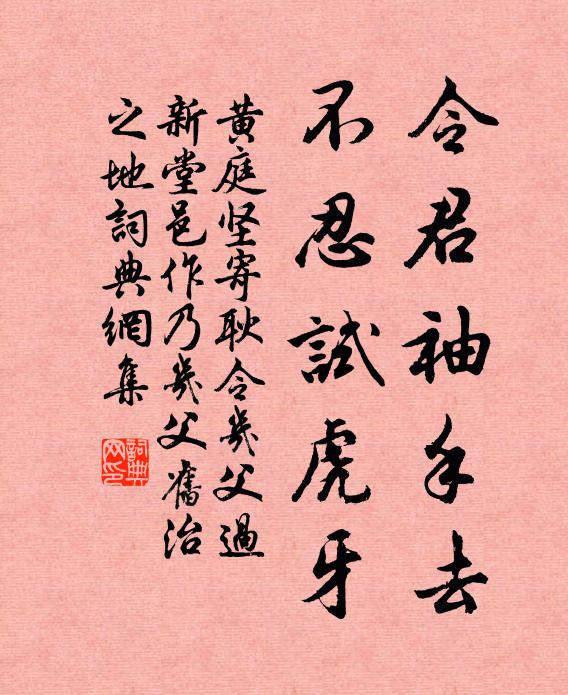 令君袖手去
不忍試虎牙
黄庭坚寄耿令幾父過
新堂邑作乃幾父舊治
之地詞典網集
詞典
网印